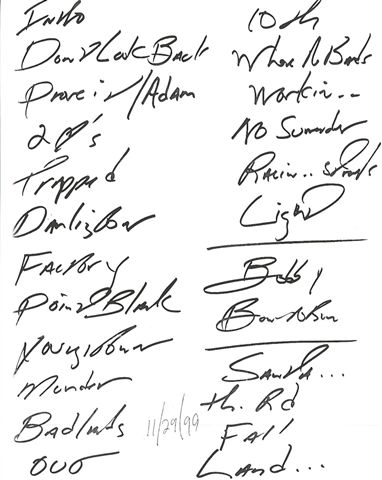 Intro
Don't Look Back
Prove it/Adam
2 ♡'s
Trapped
Darlington
Factory
Point Blank
Youngstown
Murder
Badlands
11/29/99
OUT
10th
Where th Bands
Workin...
No Surrender
Racin.. 
Light
Bobby
Born to Run
th. Rd
Fall
Land...